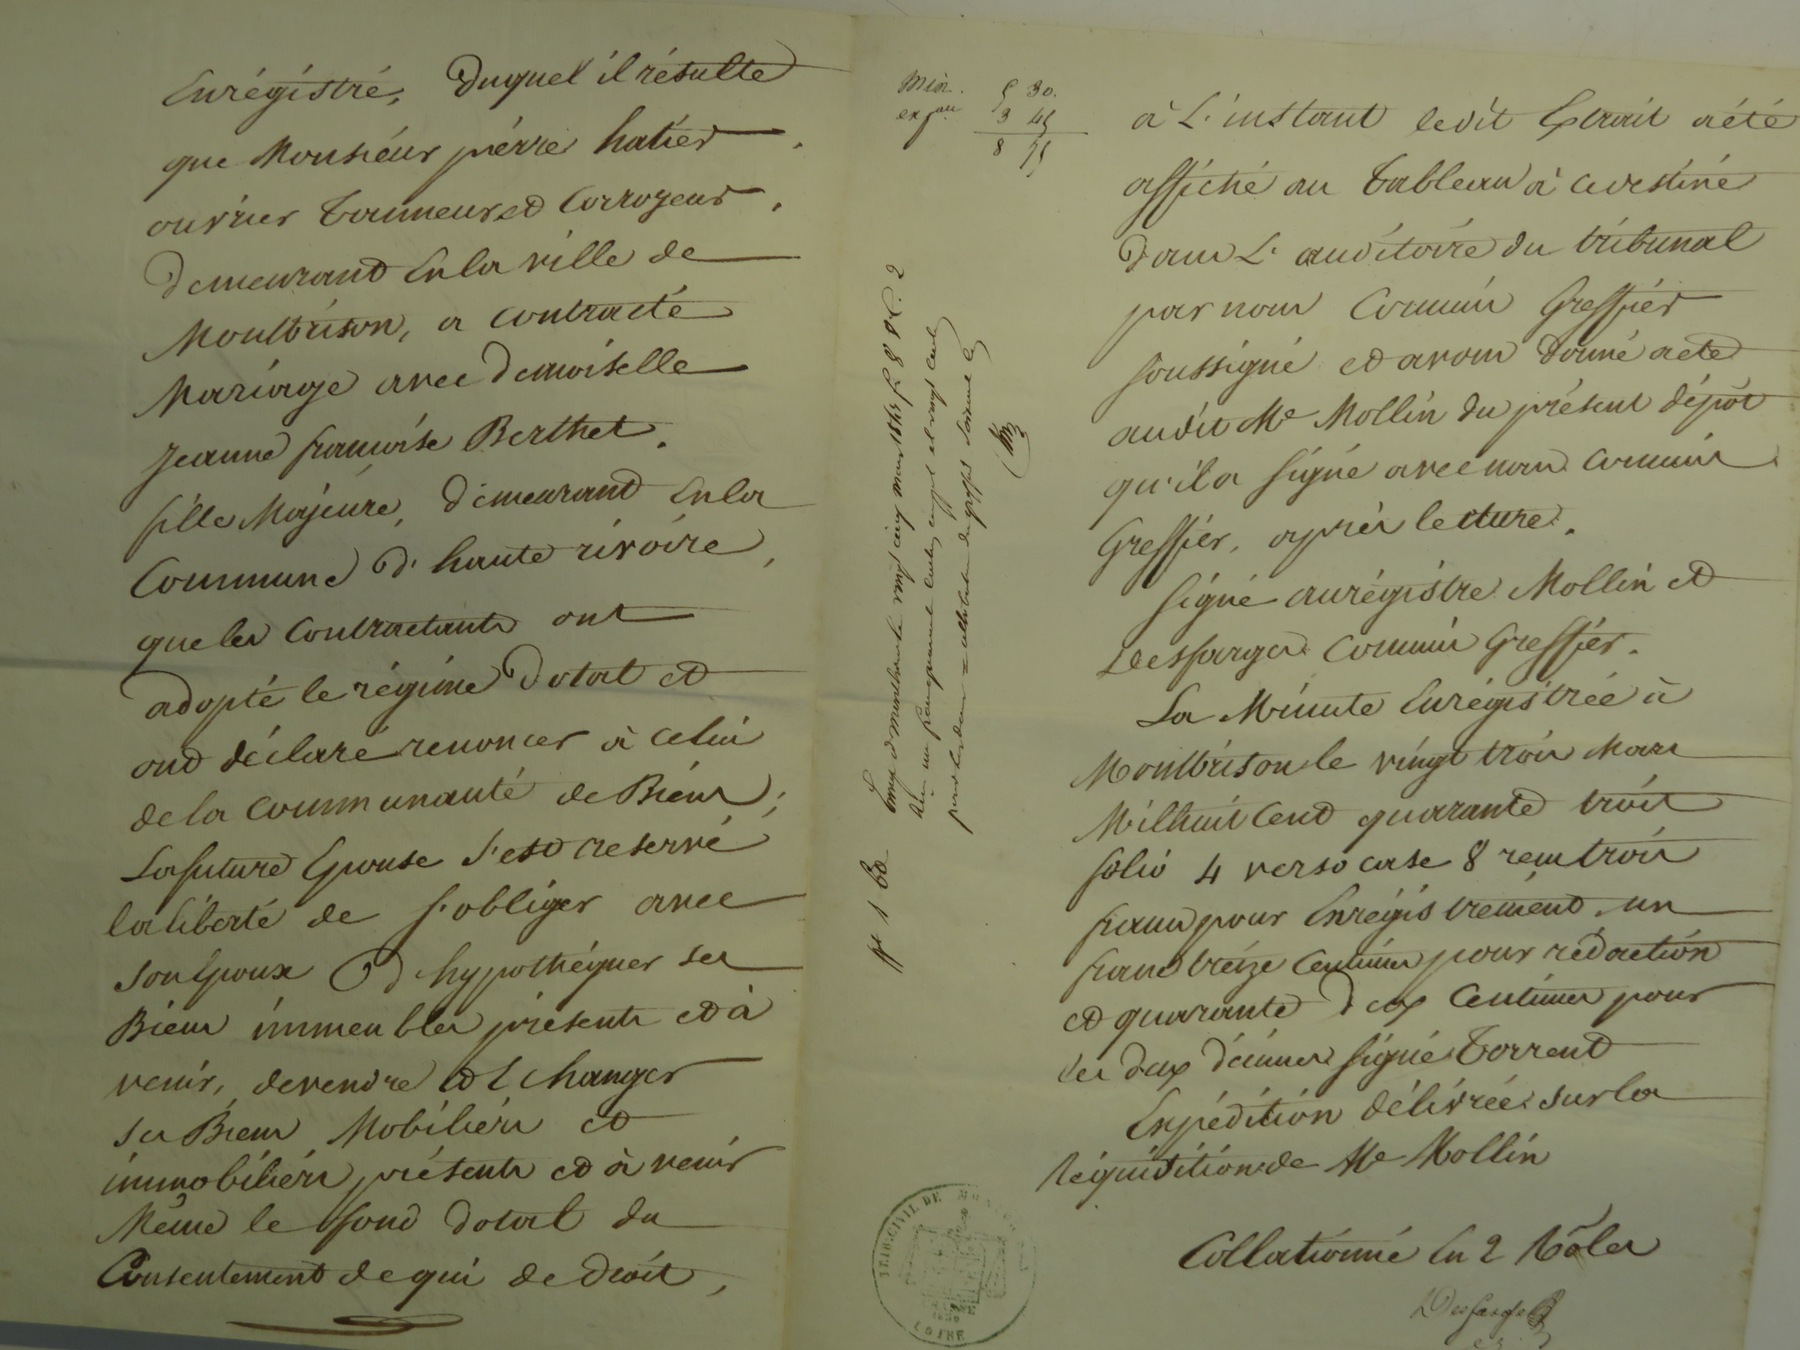 Enrégistré, Duquel il résulte
que Monsieur pierre hatier
ouvrier Tanneur et Corroyeur,
Demeurant En la ville de
Montbrison, a contracté
Mariage avec Demoiselle
Jeanne françoise Berthet,
fille Majeure, Demeurant En la
Commune D'haute rivoire,
que les Contractants ont
adopté le régime Dotal et
ont déclaré renoncer à celui
de la communauté de Biens;
La future Epouse s'est reservé
la liberté de s'obliger avec
son Epoux Et d'hypothéquer ses
Biens immeubles présents et à
venir, de vendre et Echanger
ses Biens Mobiliers et
immobiliers présents et à venir
Même le fond dotal du
Consentement de qui de Droit,
Min. 5 30.
exp.on 3 45
8 75
à L'instant ledit Extrait a été
affiché au Tableau à ce destiné
Dans L'auditoire du tribunal
par nous Commis Greffier
soussigné et avons donné acte
audit Me Mollin du présent dépôt
qu'il a signé avec nous commis
Greffier, après lecture.
signé au régistre Mollin et
Desfarges commis Greffier.
La Minute Enrégistrée à
Montbrison le vingt trois Mars
Mil huit Cent quarante trois
folio 4 verso case 8 reçu trois
francs pour Enrégistrement, un
franc treize Centimes pour rédaction
et quarante deux Centimes pour
les deux décimes signé Torrent
Expédition délivrée sur la
Réquisition de Me Mollin
Collationné En 2 Rôles
Desfarges
TRIB. CIVIL DE
LOIRE